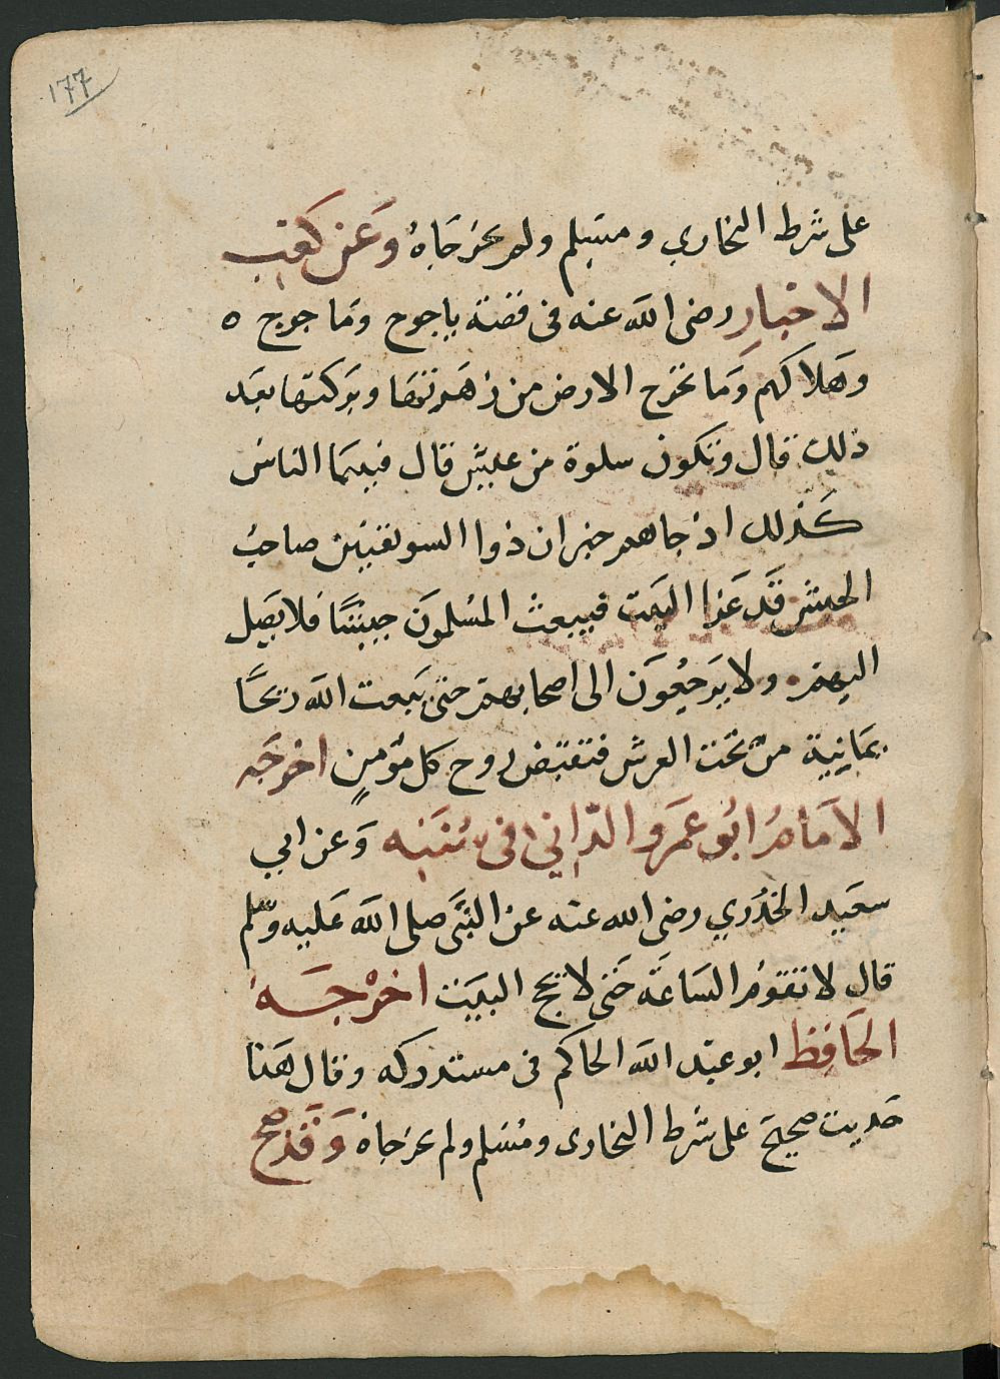 ١٧٧
على شرط البخاري ومسلم ولم يخرجاه وعن كعب
الاحبار رضى الله عنه فى قصة ياجوج وماجوج ه
وهلاكهم وما تخرج الارض من زهرتها وبركتها بعد
ذلك قال وتكون سلوة من عيش قال فبينما الناس
كذلك اذ جاهم خبر ان ذوا السويقتين صاحب
الحبش قد غزا البيت فيبعث المسلمون جيشا فلا يصل
اليهم ولا يرجعون الى اصحابهم حتى يبعث الله ريحا
يمانية من تحت العرش فتقبض روح كل مؤمن اخرجه
الامام ابو عمرو الداني فى سننه وعن ابي
سعيد الخدري رضى الله عنه عن النبى صلى الله عليه وسلم
قال لا تقوم الساعة حتى لا يحج البيت اخرجه
الحافظ ابو عبد الله الحاكم فى مستدركه وقال هذا
حديث صحيح على شرط البخارى ومسلم ولم يخرجاه وقد صح